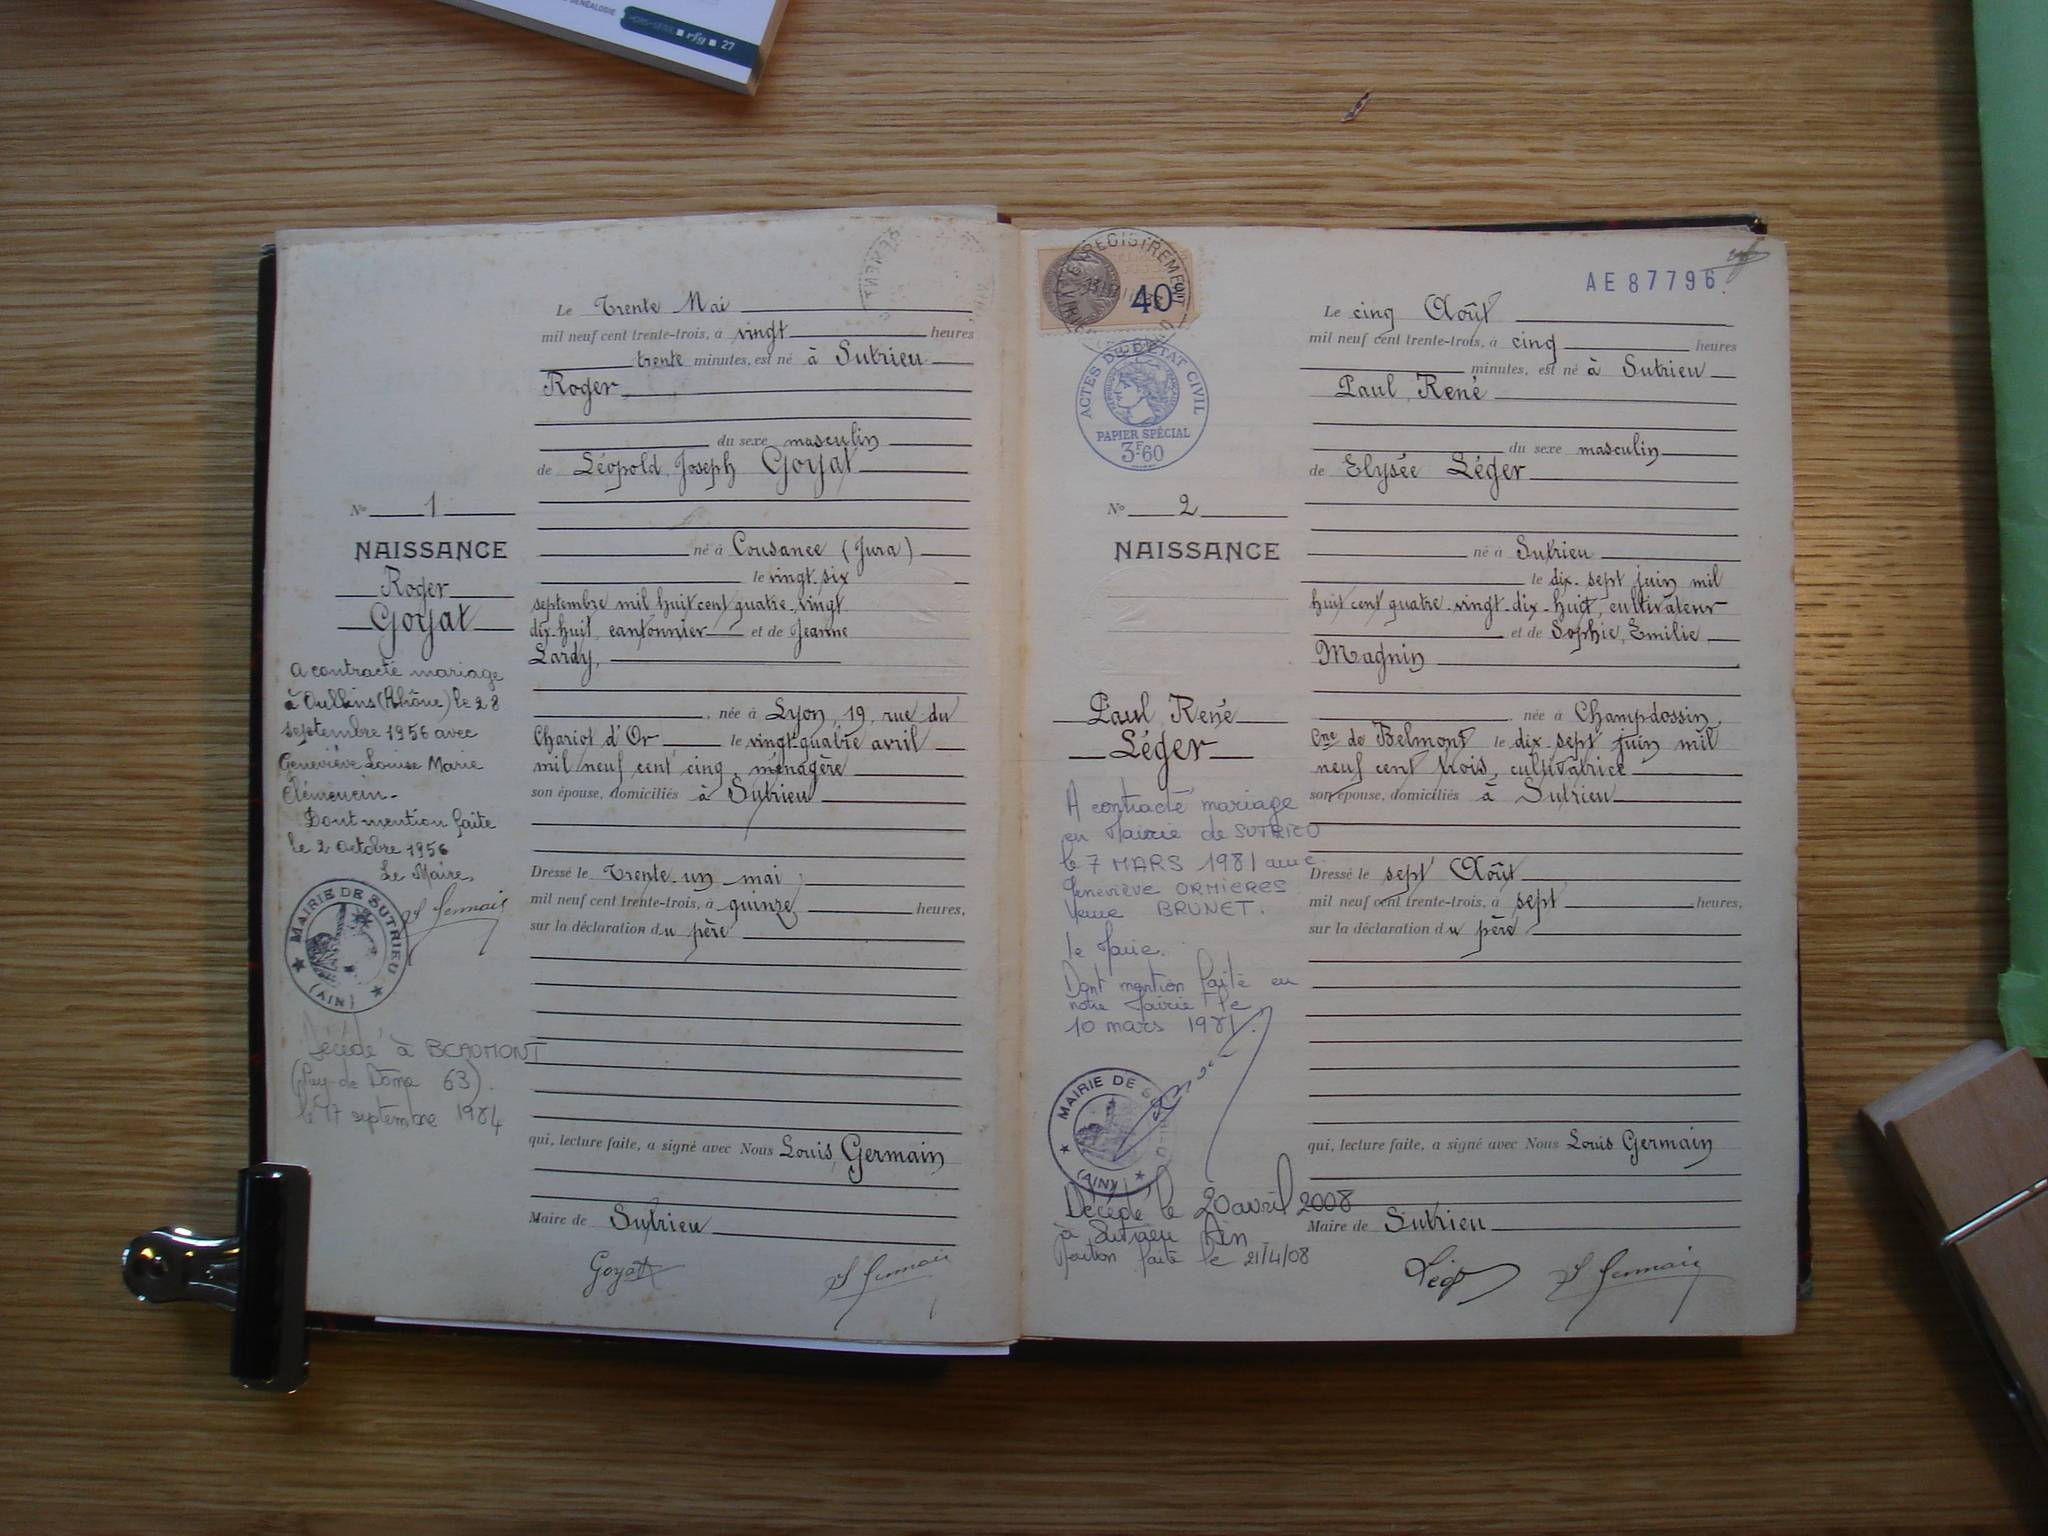 GÉNÉALOGIE HORS-SÉRIE rfg 27
Le Trente Mai
mil neuf cent trente-trois, à vingt heures
trente minutes, est né à Sutrieu
Roger
du sexe masculin
de Léopold, Joseph Goyat
N° 1
né à Cousance (Jura)
NAISSANCE
le vingt-six
Roger
septembre mil huit cent quatre-vingt
Goyat
dix-huit, cantonnier et de Jeanne
Lardy,
a contracté mariage
à Oullins (Rhône) le 28
septembre 1956 avec
Geneviève Louise Marie
Clémencin-
Dont mention faite
le 2 Octobre 1956
Le Maire,
née à Lyon, 19, rue du
Chariot d'Or le vingt-quatre avril
mil neuf cent cinq, ménagère
son épouse, domiciliés à Sutrieu
Dressé le Trente-un mai
mil neuf cent trente-trois, à quinze heures,
sur la déclaration du père
MAIRIE DE SUTRIEU
(AIN)
Décédé à BEAUMONT
(Puy de Dôme 63).
le 17 septembre 1984
qui, lecture faite, a signé avec Nous Louis Germain
Maire de Sutrieu
Goyat
L Germain
ENREGISTREMENT
40
AE87796
ACTES DE L'ÉTAT CIVIL
PAPIER SPÉCIAL
3F60
Le cinq Août
mil neuf cent trente-trois, à cinq heures
minutes, est né à Sutrieu
Paul, René
du sexe masculin
de Elysée Léger
N° 2
né à Sutrieu
NAISSANCE
le dix-sept juin mil
huit cent quatre-vingt-dix-huit, cultivateur
et de Sophie, Emilie
Magnin
Paul René
Léger
née à Champdossin,
Cne de Belmont le dix-sept juin mil
neuf cent trois, cultivatrice
son épouse, domiciliés à Sutrieu
A contracté mariage
en Mairie de SUTRIEU
le 7 MARS 1981 avec
Geneviève ORMIERES
Veuve BRUNET.
le Maire.
Dont mention faite en
notre Mairie le
10 mars 1981.
Dressé le sept Août
mil neuf cent trente-trois, à sept heures,
sur la déclaration du père
MAIRIE DE SUTRIEU
(AIN)
Décédé le 20 avril 2008
à Sutrieu Ain
Mention faite le 21/4/08
qui, lecture faite, a signé avec Nous Louis Germain
Maire de Sutrieu
Léger
L Germain